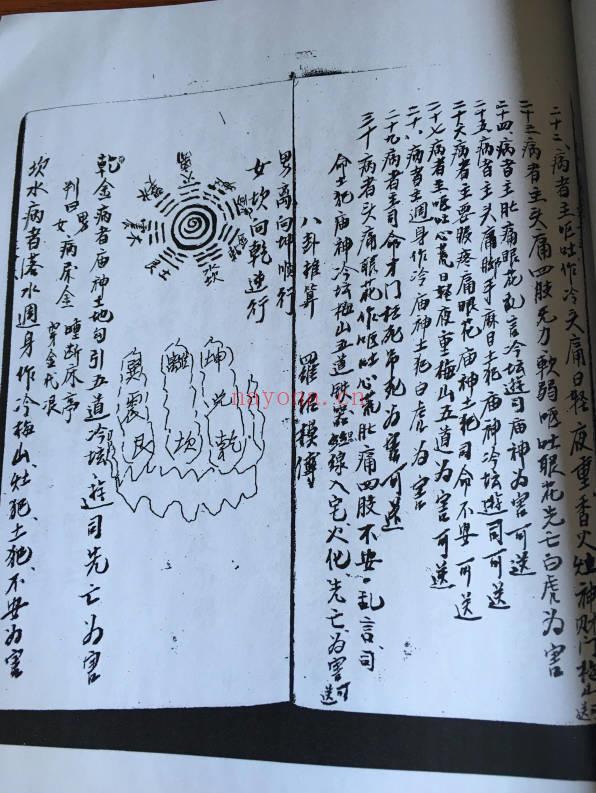 二十二病者主呕吐作冷头痛日轻夜重香火灶神财门
二十三病者主头痛四肢无力軟弱呕吐眼花先亡白虎为害
二十四病者主肚痛眼花乱言冷坛遊司庙神为害可送
二十五病者主头痛脚手麻日土犯庙神冷坛遊司可送
二十六病者主要眼疼痛眼花庙神土犯司命不安可送
二十七病者主呕吐心荒日轻夜重梅山五道为害可送
二十八病者主週身作冷庙神土犯白虎为害
二十九病者主司命才门枉死吊死为害可送
三十病者头痛眼花作呕吐心荒肚痛四肢不安乱言司
命土犯庙神冷坛梅山五道线入宅火化先亡为害可送
八卦推算
男离向坤順行
女坎向乾逆行
坎
坤兑乾
離坎
巽震艮
乾金病者庙神土地勾引五道冷坛遊司先亡为害
男
女病床金
坎水病者落水週身作冷梅山灶犯土犯不安为害
nayona.cn